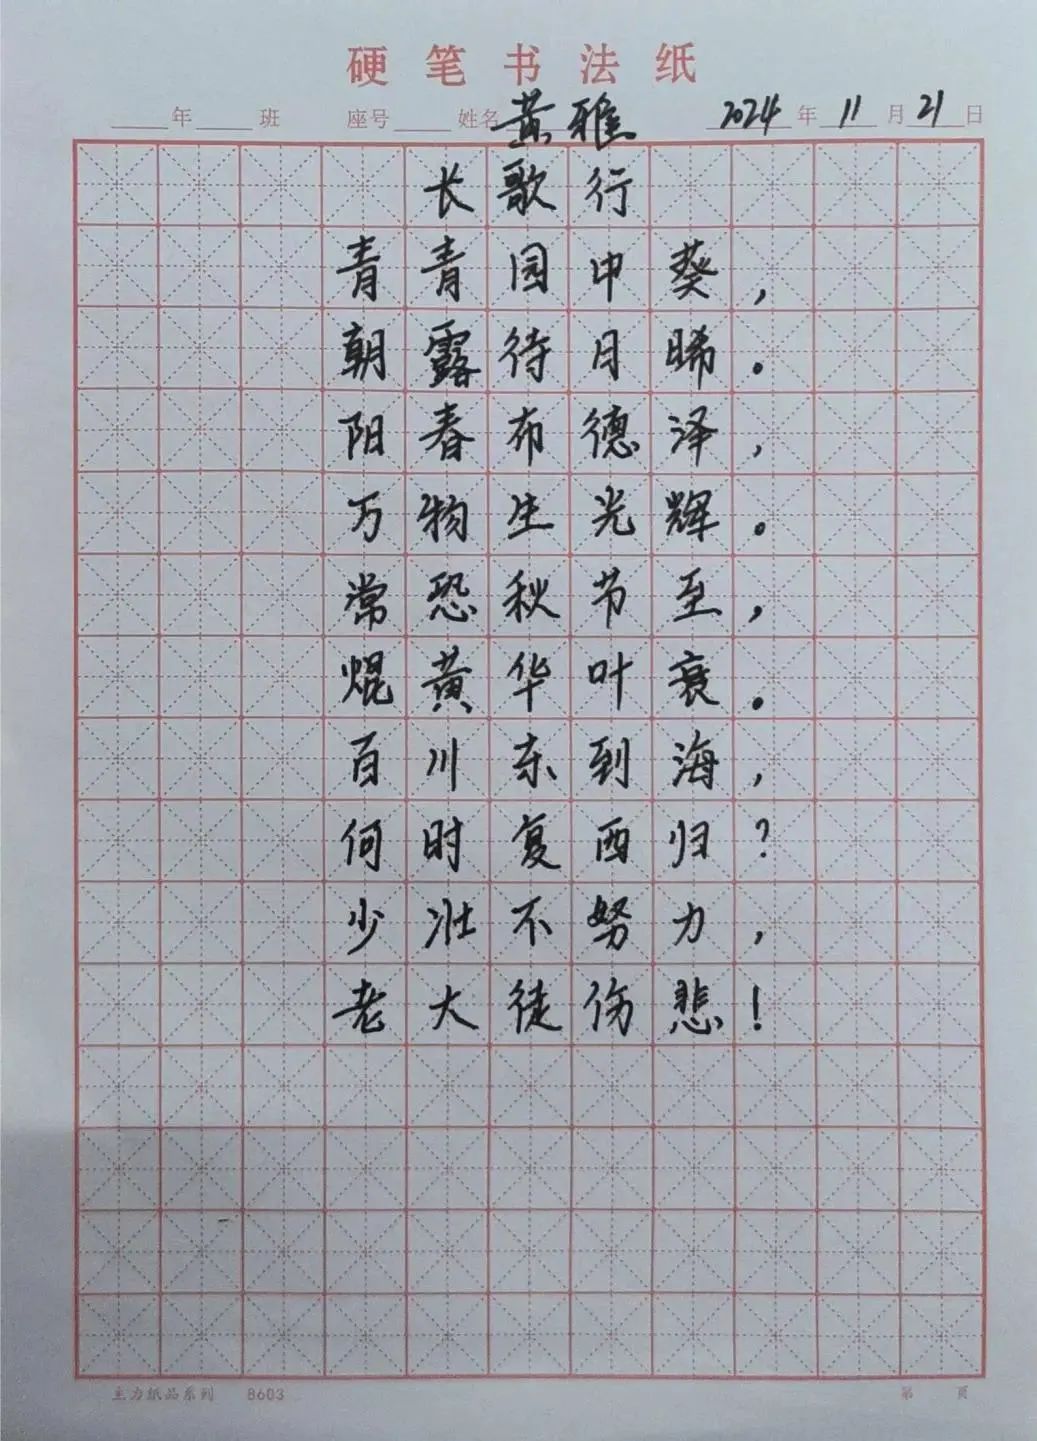 硬笔书法纸
年 班 座号 姓名 黄雅 2024年11月21日
长歌行
青青园中葵，
朝露待月晞。
阳春布德泽，
万物生光辉。
常恐秋节至，
焜黄华叶衰。
百川东到海，
何时复西归？
少壮不努力，
老大徒伤悲！
主力纸品系列 8603 第 页